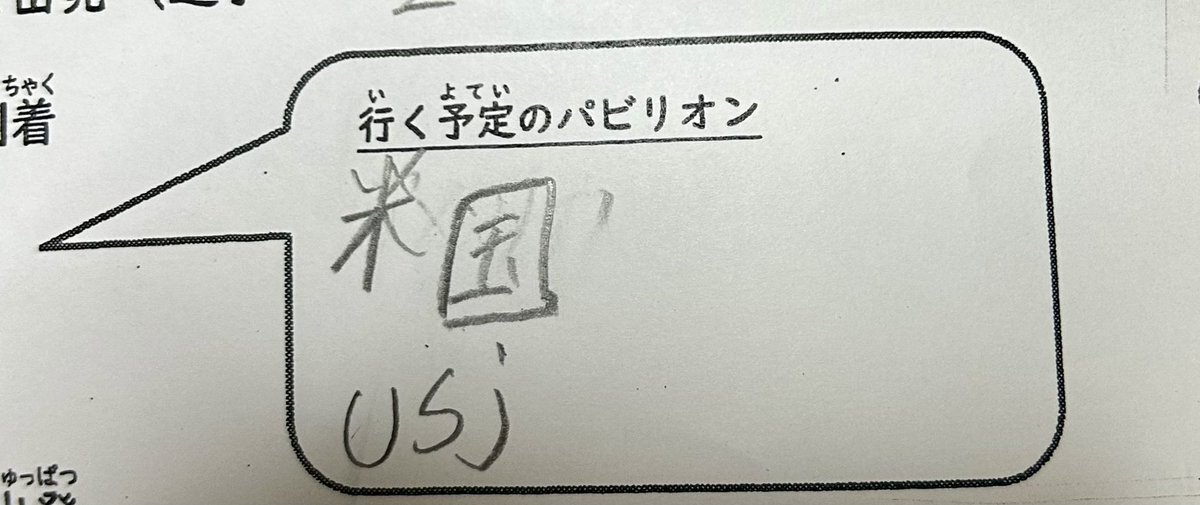 ちゃく
着
い よてい
行く予定のパビリオン
米国
usj
ゅっぱつ